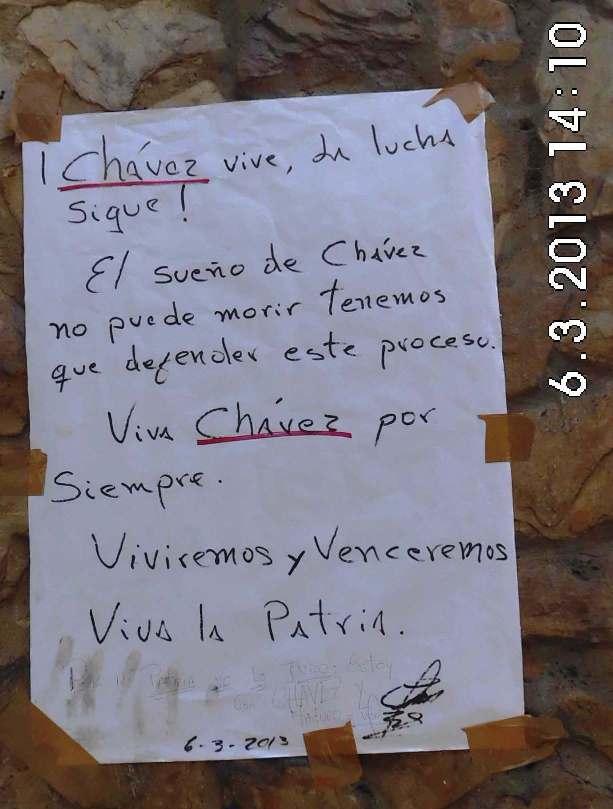 ¡Chávez vive, la lucha
sigue!
El sueño de Chávez
no puede morir tenemos
que defender este proceso.
Viva Chávez por
Siempre.
Viviremos y Venceremos
Viva la Patria.
Estoy
con CHÁVEZ y
6-3-2013
6.3.2013 14:10